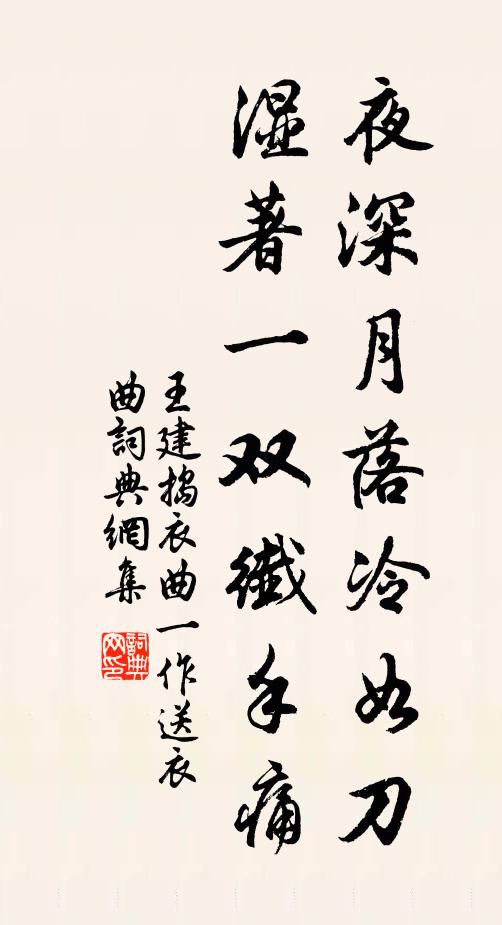 夜深月落冷如刀
湿著一双纖手痛
王建捣衣曲一作送衣
曲詞典網集
詞典
网印